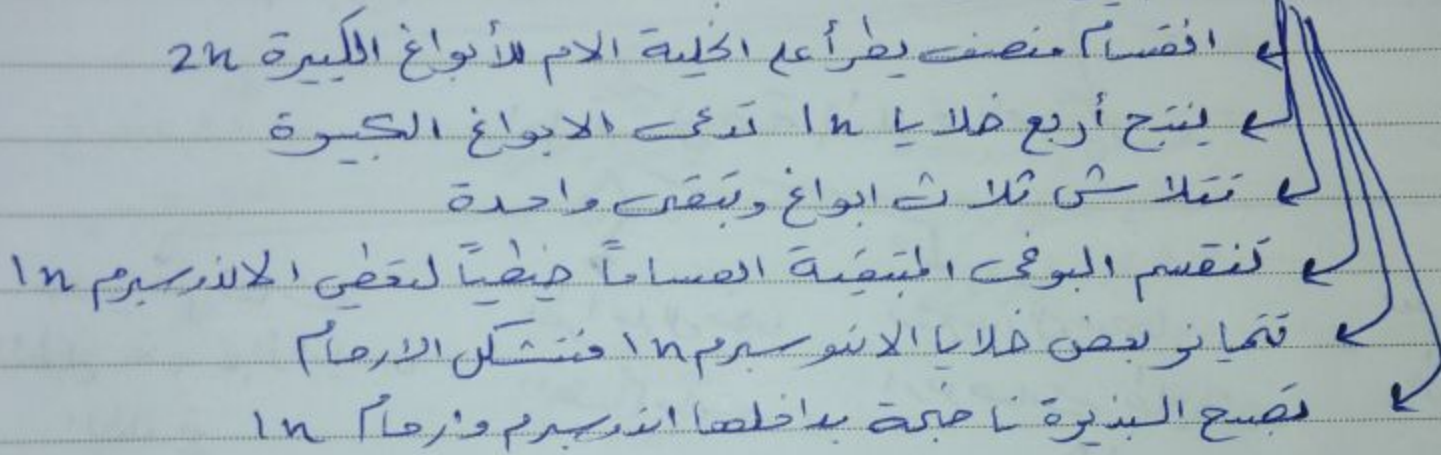 انقسام منصف يطرأ على الخلية الام للأبواغ الكبيرة 2n
ينتج أربع خلايا 1n تدعى الابواغ الكبيرة
تتلاشى ثلاث ابواغ وتبقى واحدة
تنقسم البوغة المتبقية انقساماً خيطياً لتعطي الاندوسبرم 1n
تتمايز بعض خلايا الاندوسبرم 1n فتتشكل الارحام
تصبح البذيرة ناضجة بداخلها اندوسبرم وارحام 1n